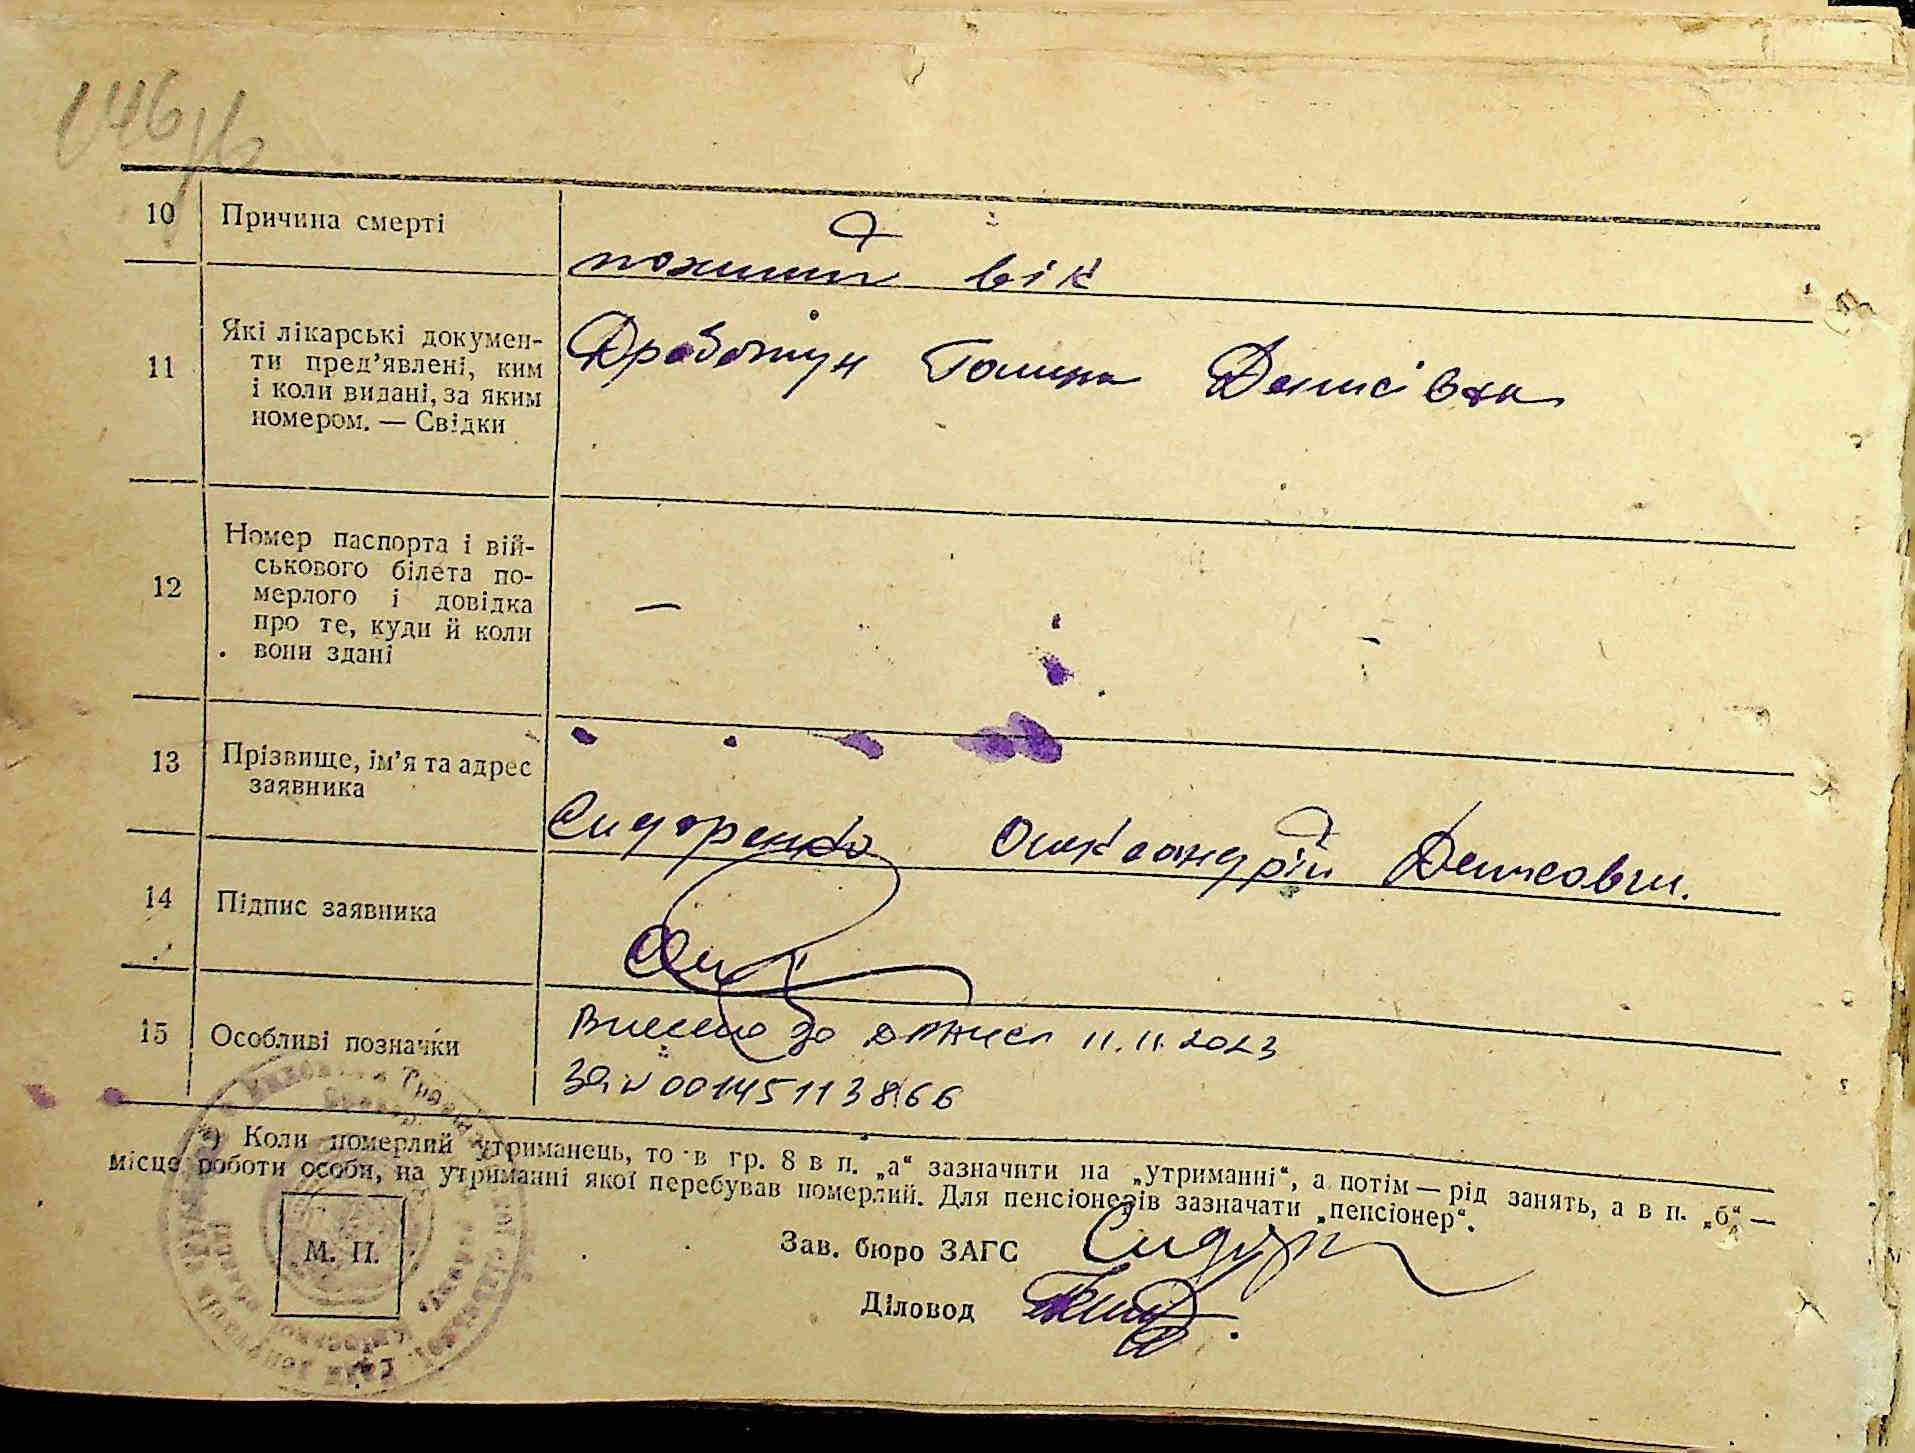 146
10 Причина смерті
похилий вік
11 Які лікарські докумен-
ти пред’явлені, ким
і коли видані, за яким
номером. — Свідки
Дроботун Галина Денисівна
12 Номер паспорта і вій-
ськового білета по-
мерлого і довідка
про те, куди й коли
вони здані
—
13 Прізвище, ім’я та адрес
заявника
Сидоренко Олександрій Денисович.
14 Підпис заявника
15 Особливі позначки
Внесено до 11.11.2023
00145113866
*) Коли померлий утриманець, то в гр. 8 в п. „а“ зазначити на „утриманні“, а потім — рід занять, а в п. „б“ —
місце роботи особи, на утриманні якої перебував померлий. Для пенсіонерів зазначати „пенсіонер“.
М. П.
Зав. бюро ЗАГС
Діловод